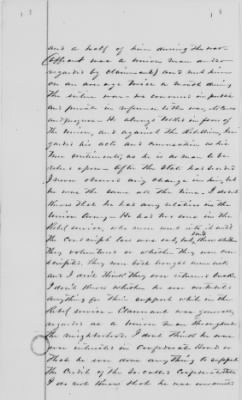 and a half of him during the war
(affiant was a Union man and so
regarded by claimant) and met him
on an average twice a month during
the entire war - he conversed in public
and private in reference to the war, its causes
and progress - He always talked in favor of
the Union, and against the Rebellion,
his acts and
Union sentiments, as he is a man to be
relied upon - After the State had seceded
I never observed any change in him, but
he was the same all the time - I don't
know that he has any relatives in the
Union Army - He had two sons in the
Rebel service, who were sent into it until
the Conscript law was out, but, and whether
they volunteered or whether they were con-
scripted, they were both brought
and I don't think they ever returned back
I don't know whether he ever contributed
anything for their support while in the
Rebel service - Claimant was generally
regarded as a Union man throughout
the neighborhood. I don't think he ever
was interested in Confederate Bonds or
that he ever done anything to support
the Credit of the So called Confederate States
I do not know that he ever